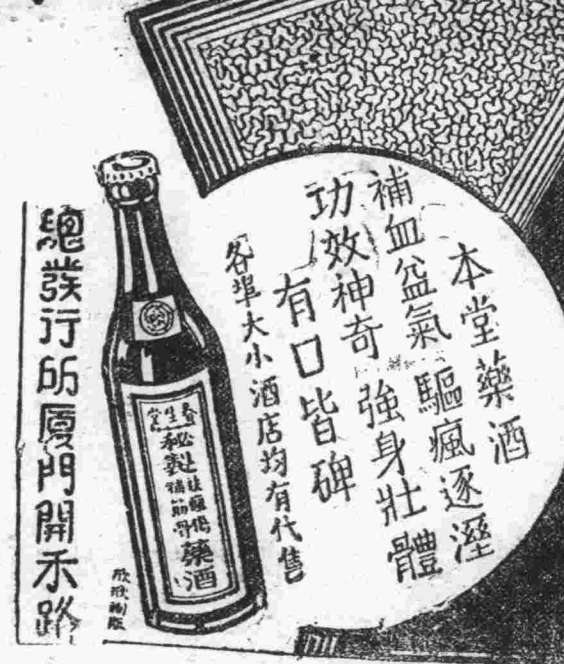 本堂藥酒
補血益氣 驅瘋逐溼
功效神奇 強身壯體
有口皆碑
各埠大小酒店均有代售
春生堂
秘製
補筋骨
藥酒
總發行所廈門開禾路
欣欣制版